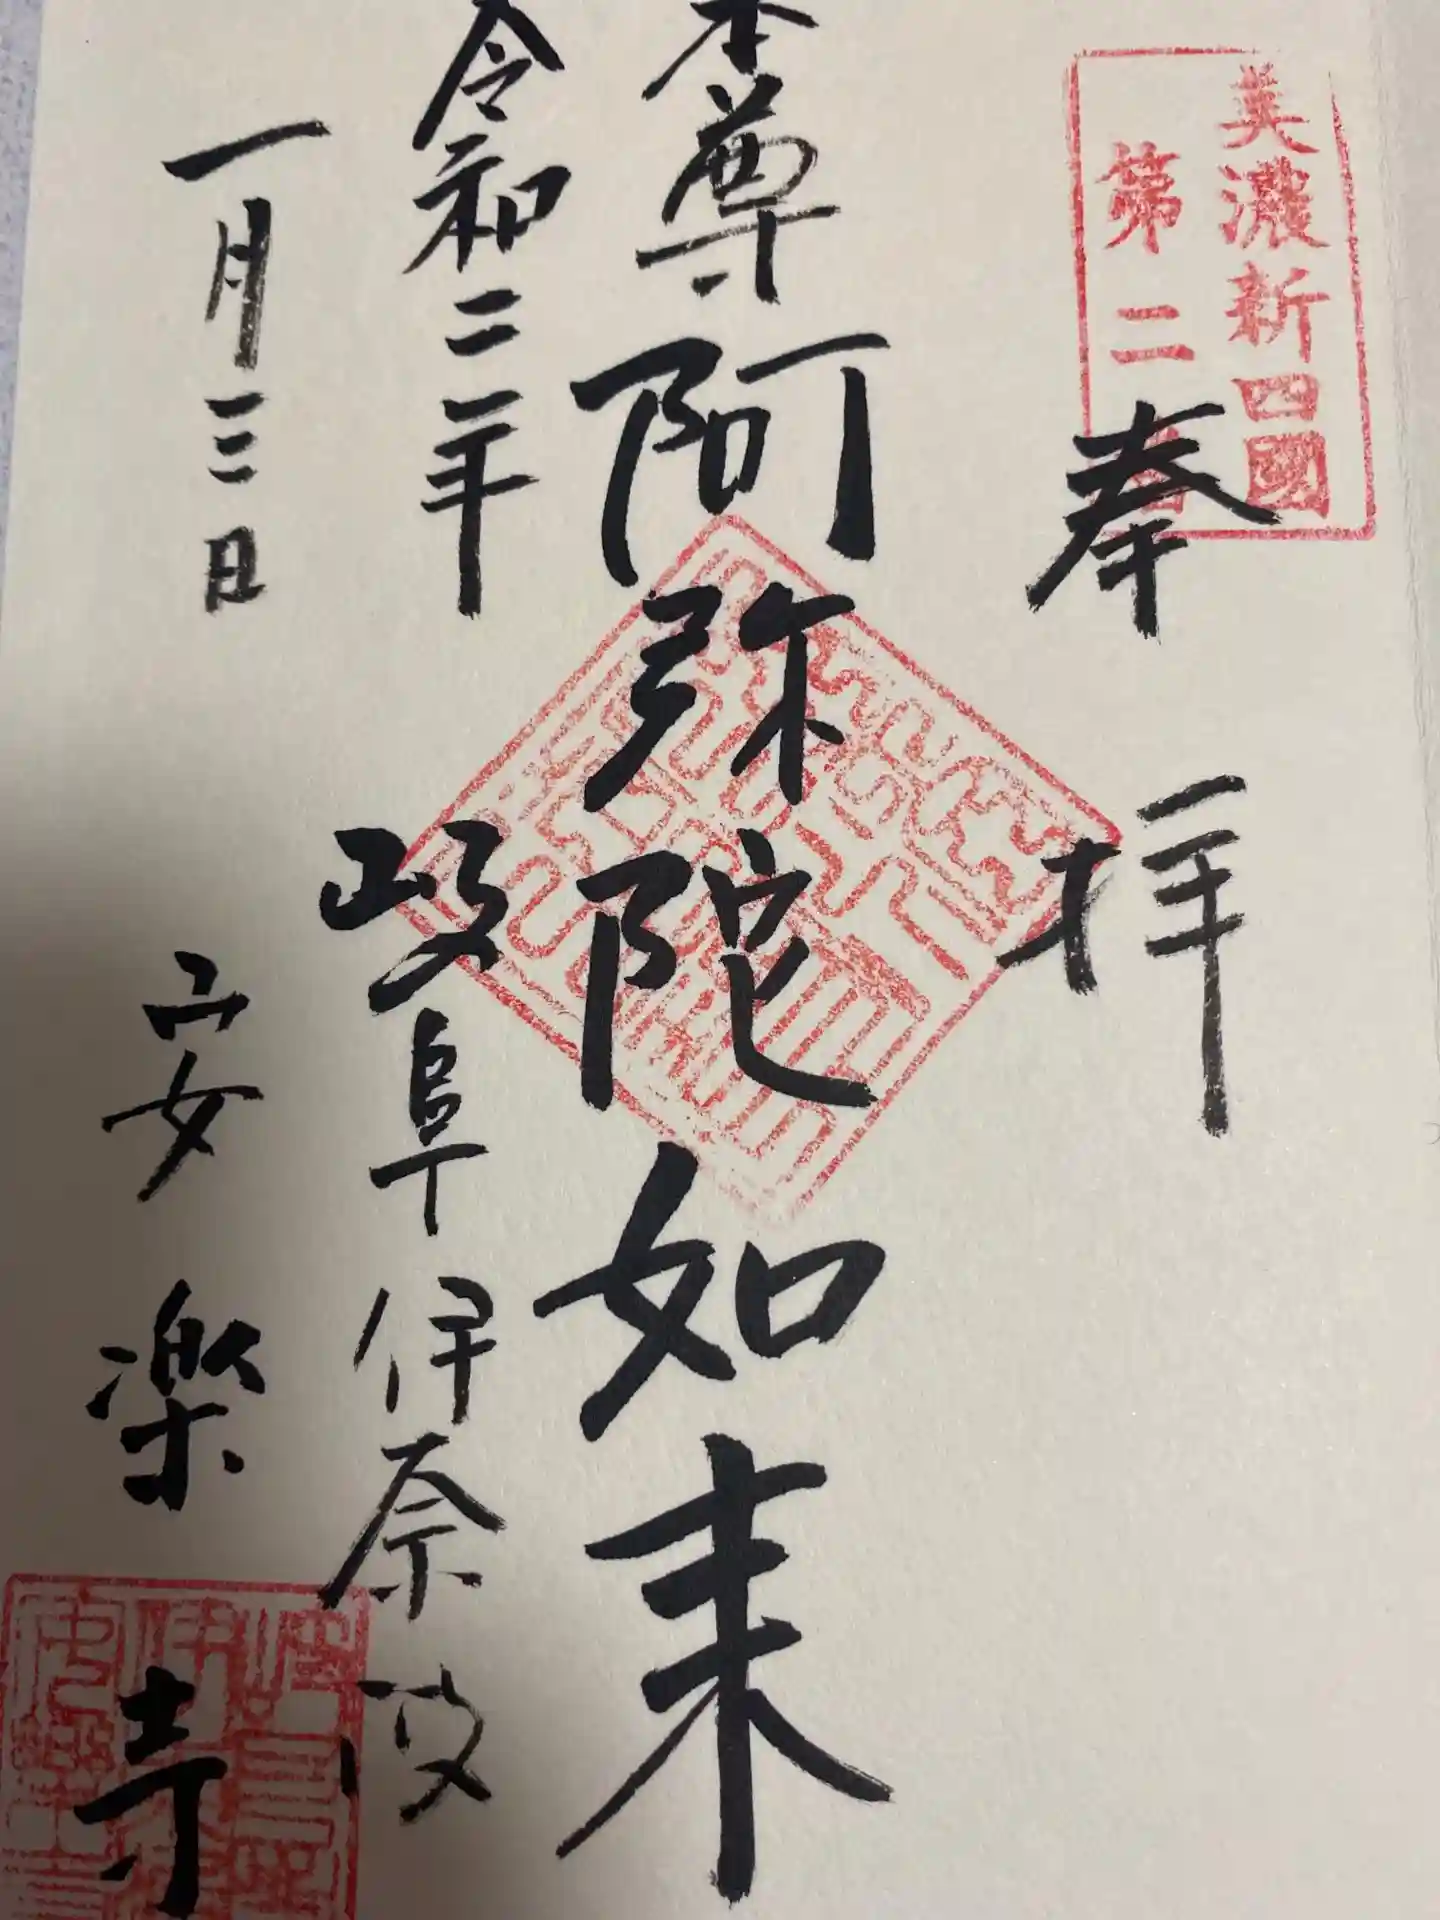 美濃新四國
第二番
奉拝
本尊阿弥陀如来
令和二年
岐阜伊奈波
一月三日
安楽寺